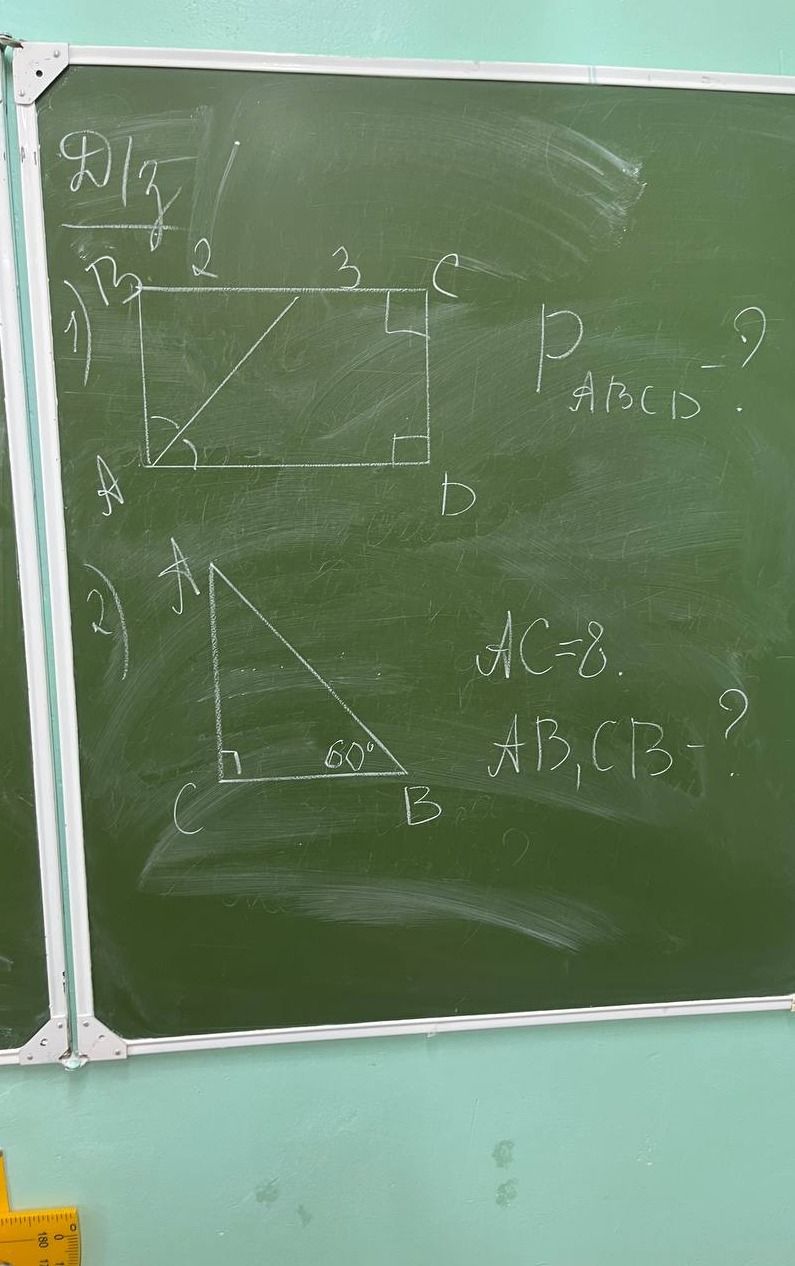 Д/з
1) B 2 3 C
P ABCD - ?
A D
2) A
AC=8.
60°
AB, CB - ?
C B
0
180